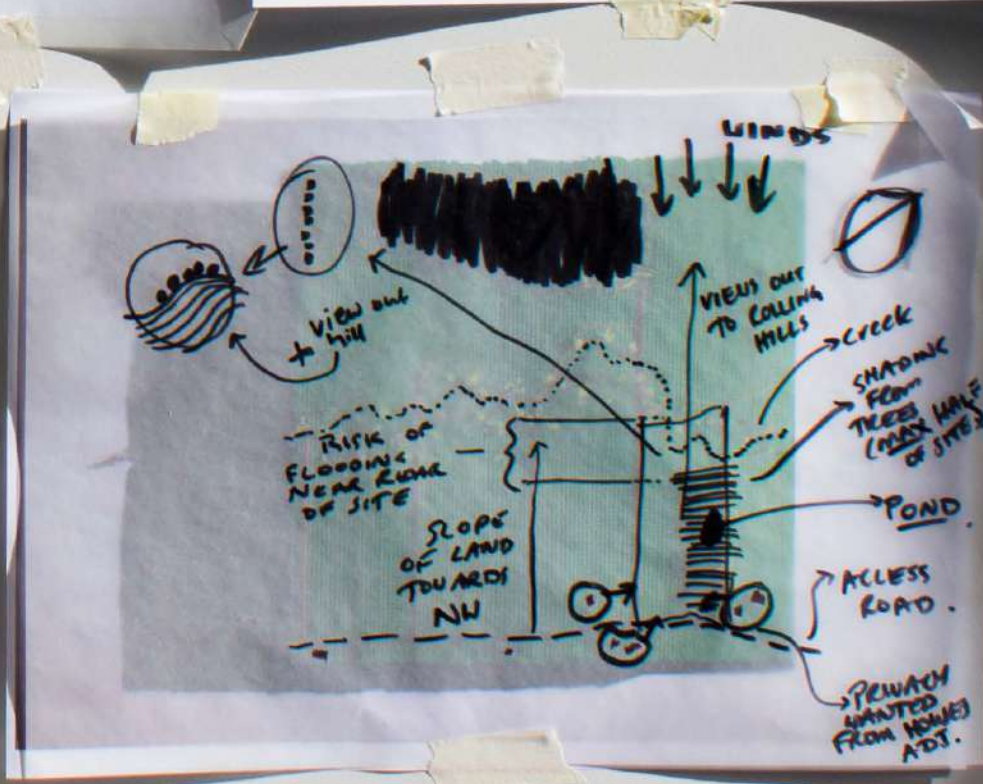 WINDS
VIEWS OUT
TO ROLLING
HILLS
creek
SHADING
FROM
TREES
(MAX HALF
OF SITE)
view out
+ hill
RISK OF
FLOODING
NEAR REAR
OF SITE
SLOPE
OF LAND
TOWARDS
NW
POND.
ACCESS
ROAD.
PRIVACY
WANTED
FROM HOMES
ADJ.